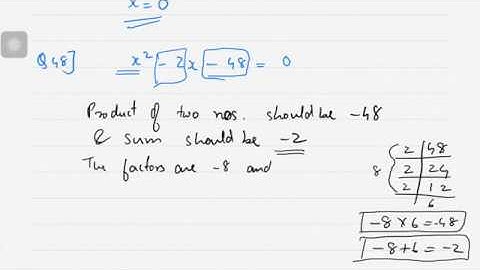 x = 0
Q48] x² - 2x - 48 = 0
Product of two nos. should be -48
& sum should be -2
The factors are -8 and
8
2 | 48
2 | 24
2 | 12
6
-8 × 6 = -48
-8 + 6 = -2